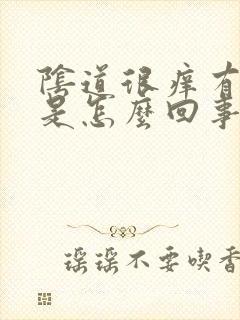 陰道很痒有
是怎麼回事
瑤瑤不要喫香